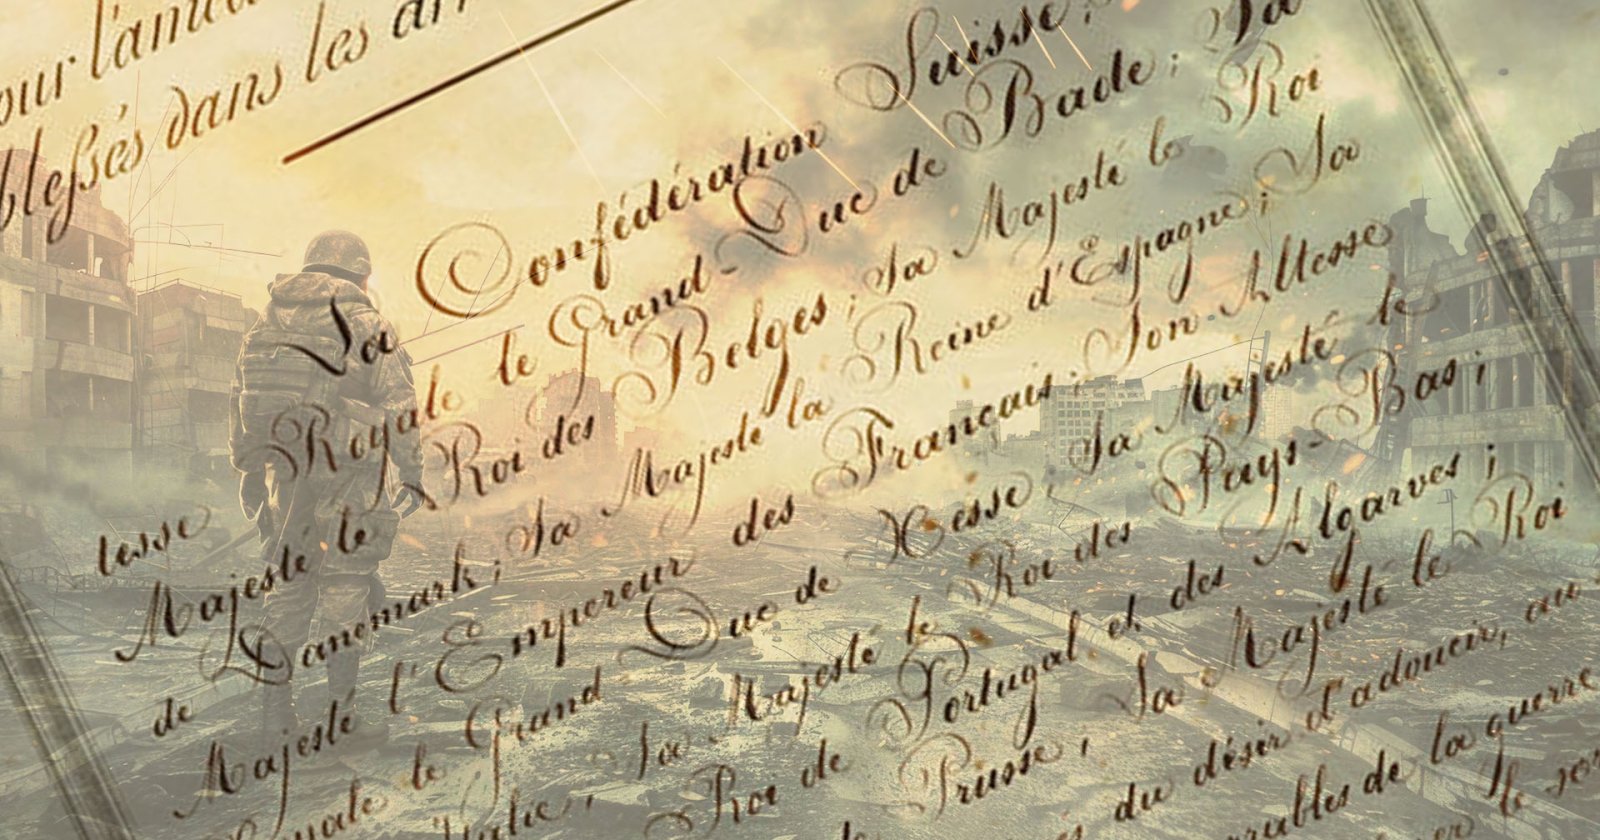 our l'amé
blessés dans les ar
La Confédération Suisse;
tesse Royale le Grand-Duc de Bade; Sa
Majesté le Roi des Belges; Sa Majesté le Roi
de Danemark; Sa Majesté la Reine d'Espagne; Sa
Majesté l'Empereur des Français; Son Altesse
Royale le Grand Duc de Hesse; Sa Majesté le
Italie; Sa Majesté le Roi des Pays-Bas;
Roi de Portugal et des Algarves;
Prusse; Sa Majesté le Roi
du désir d'adoucir, au
de la guerre
le